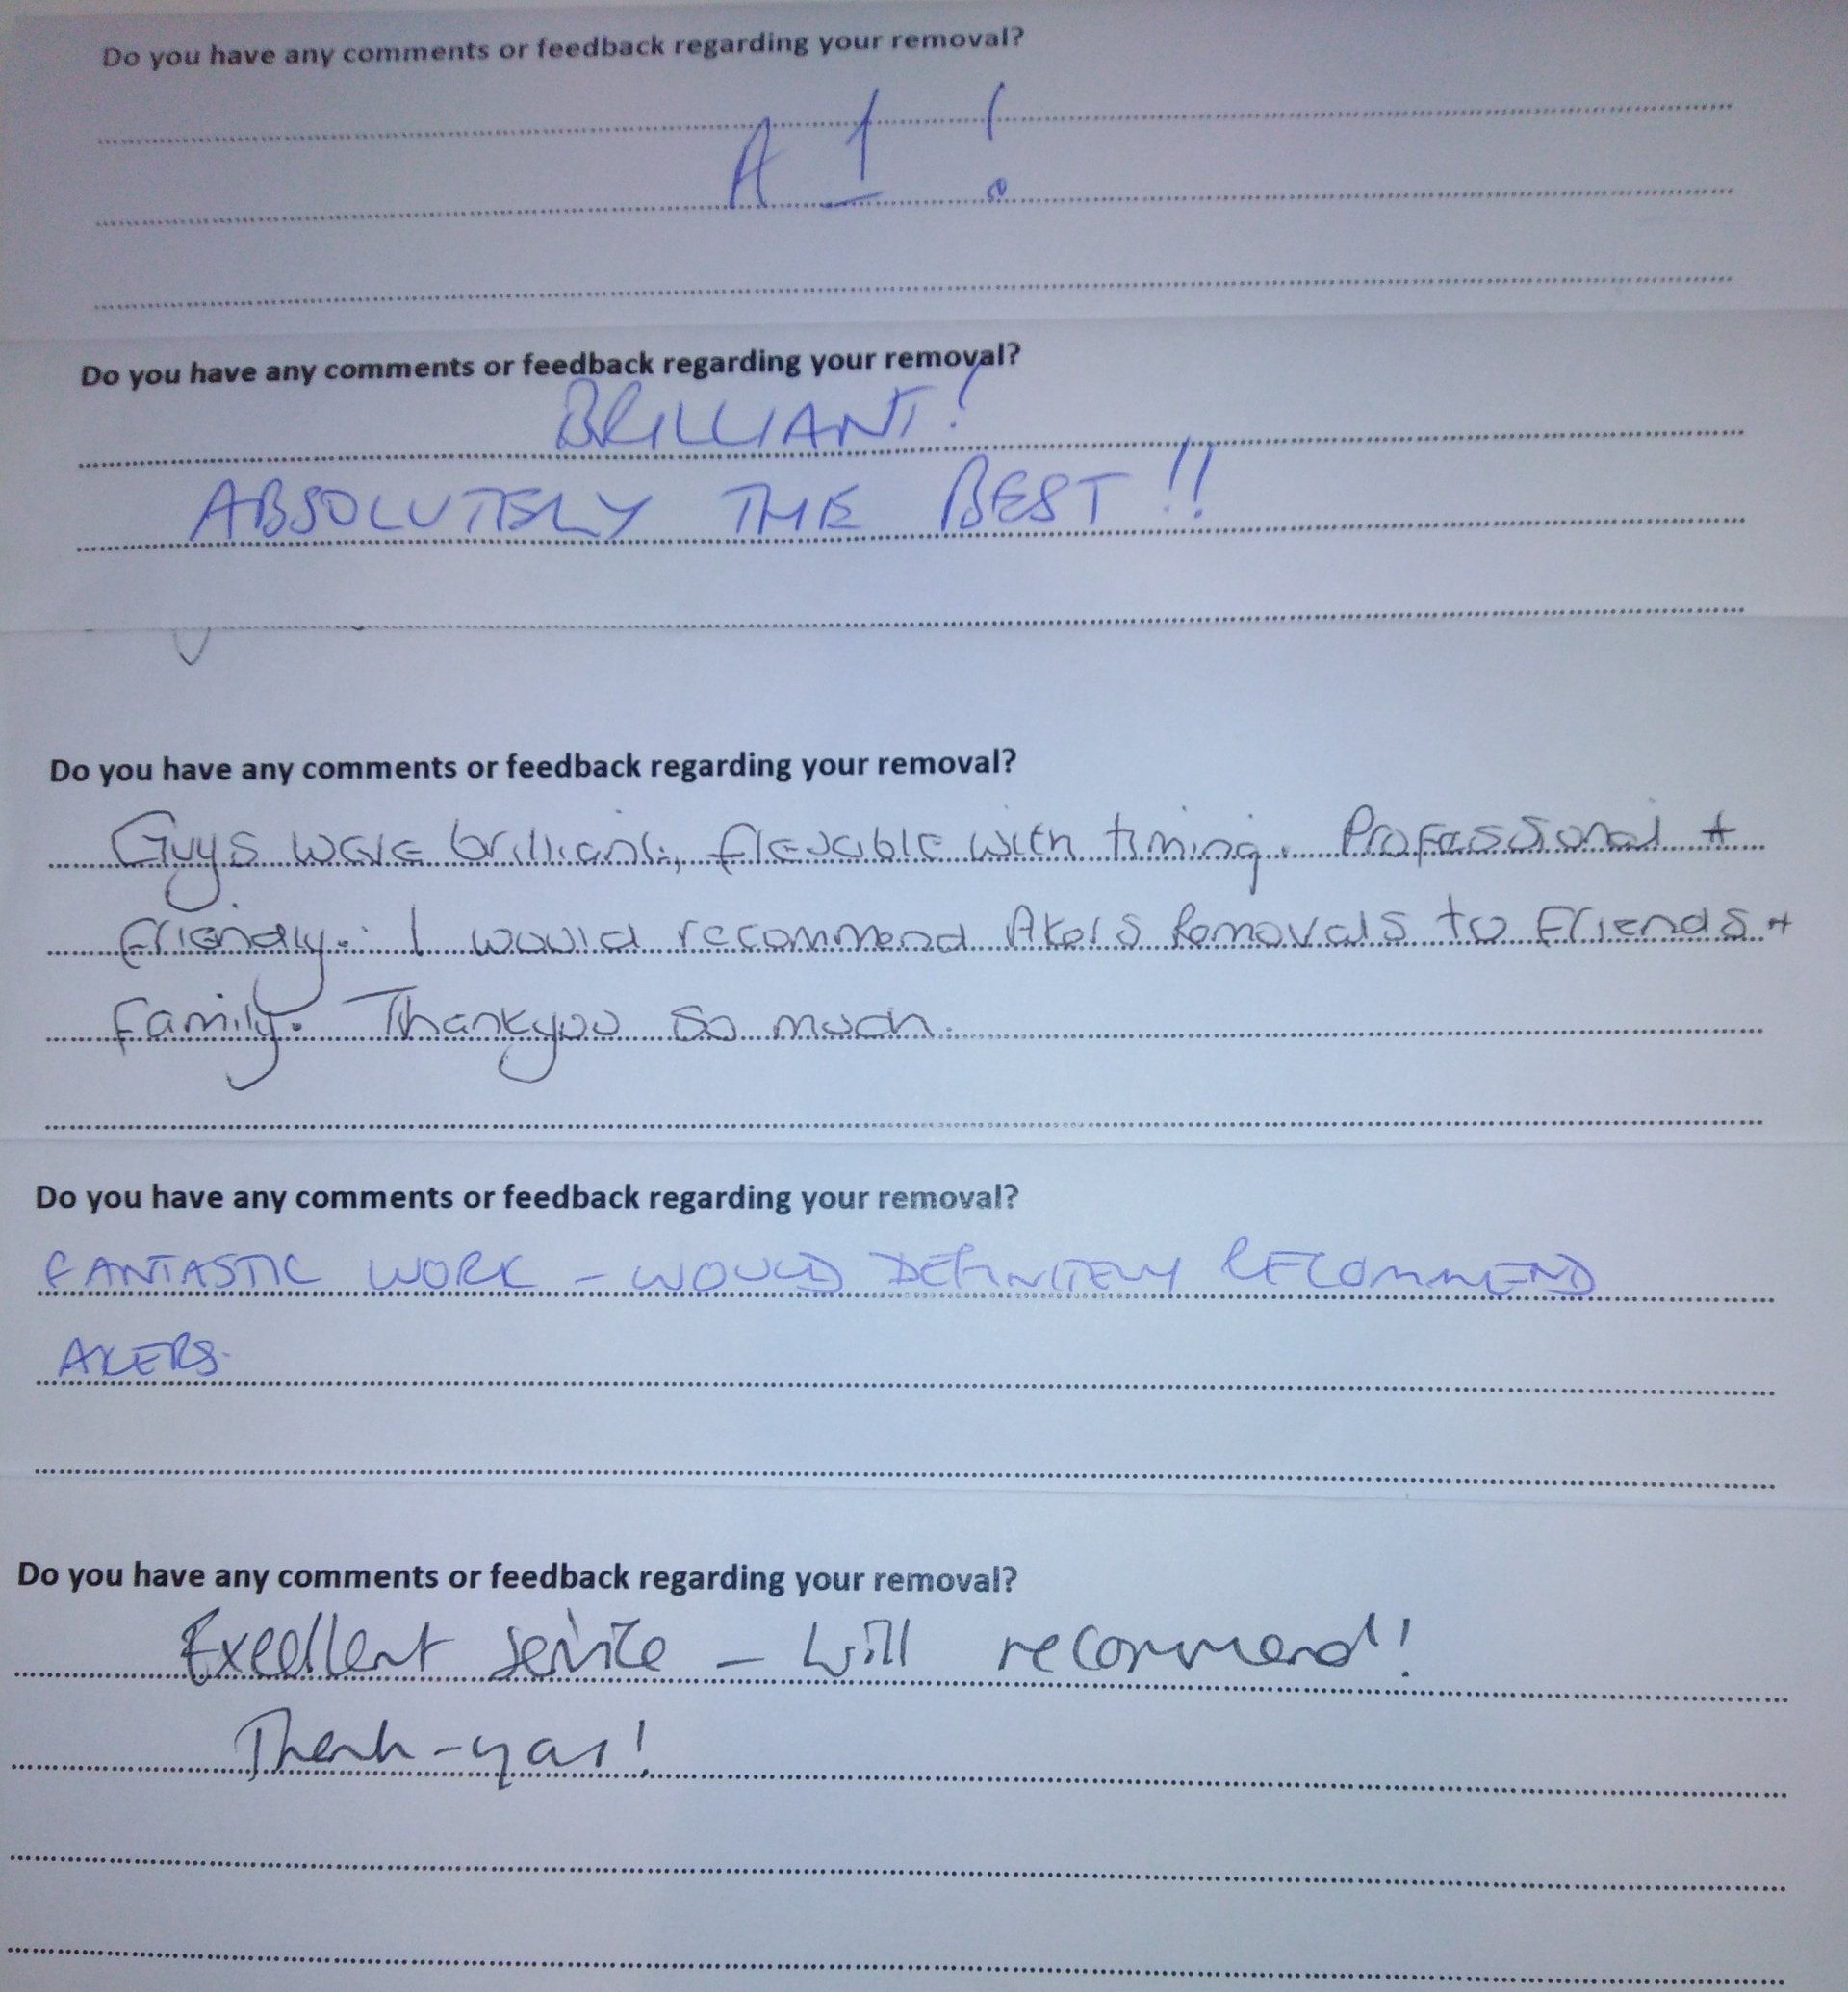 Do you have any comments or feedback regarding your removal?
A 1 !
Do you have any comments or feedback regarding your removal?
BRILLIANT!
ABSOLUTELY THE BEST!!
Do you have any comments or feedback regarding your removal?
Guys were brilliant, flexable with timing. Professional +
friendly. I would recommend Akers Removals to friends +
family. Thankyou so much.
Do you have any comments or feedback regarding your removal?
FANTASTIC WORK - WOULD DEFINITELY RECOMMEND
AKERS.
Do you have any comments or feedback regarding your removal?
Excellent service - will recommend!
Thank-you!